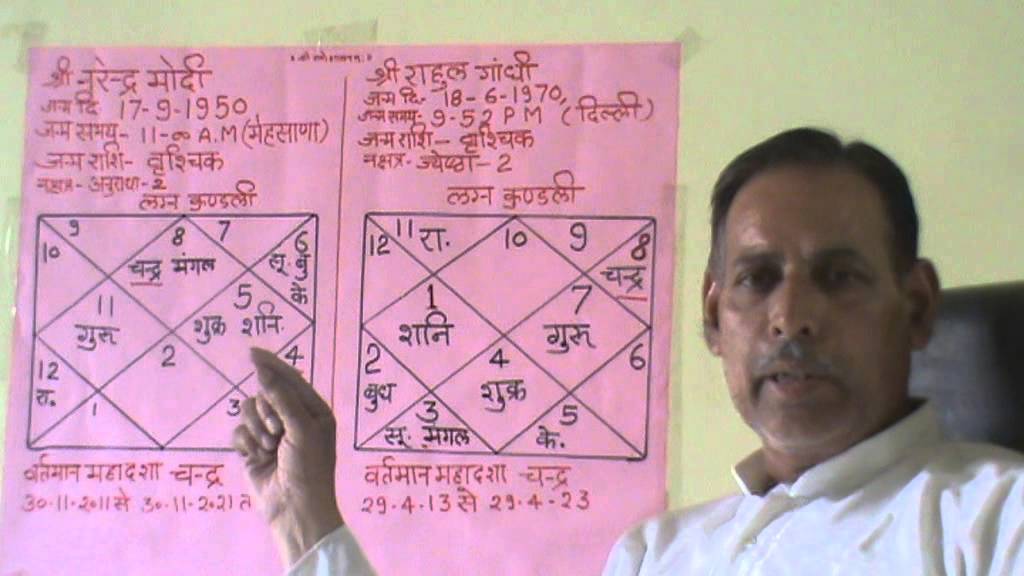 श्री नरेन्द्र मोदी
जन्म दि. 17-9-1950,
जन्म समय- 11-00 A.M (मेहसाणा)
जन्म राशि- वृश्चिक
नक्षत्र- अनुराधा-2
लग्न कुण्डली
9
8
7
6
10
चन्द्र मंगल
सू. बु
के
11
5
गुरु
शुक्र शनि.
12
2
4
रा.
1
3
वर्तमान महादशा - चन्द्र
30-11-2011 से 30-11-2021 त
श्री राहुल गांधी
जन्म दि- 18-6-1970,
जन्म समय- 9-52 PM (दिल्ली)
जन्म राशि- वृश्चिक
नक्षत्र- ज्येष्ठा-2
लग्न कुण्डली
12
11 रा.
10
9
8
चन्द्र
1
7
शनि
गुरु
2
4
6
बुध
शुक्र
3
5
सू. मंगल
के.
वर्तमान महादशा - चन्द्र
29-4-13 से 29-4-23